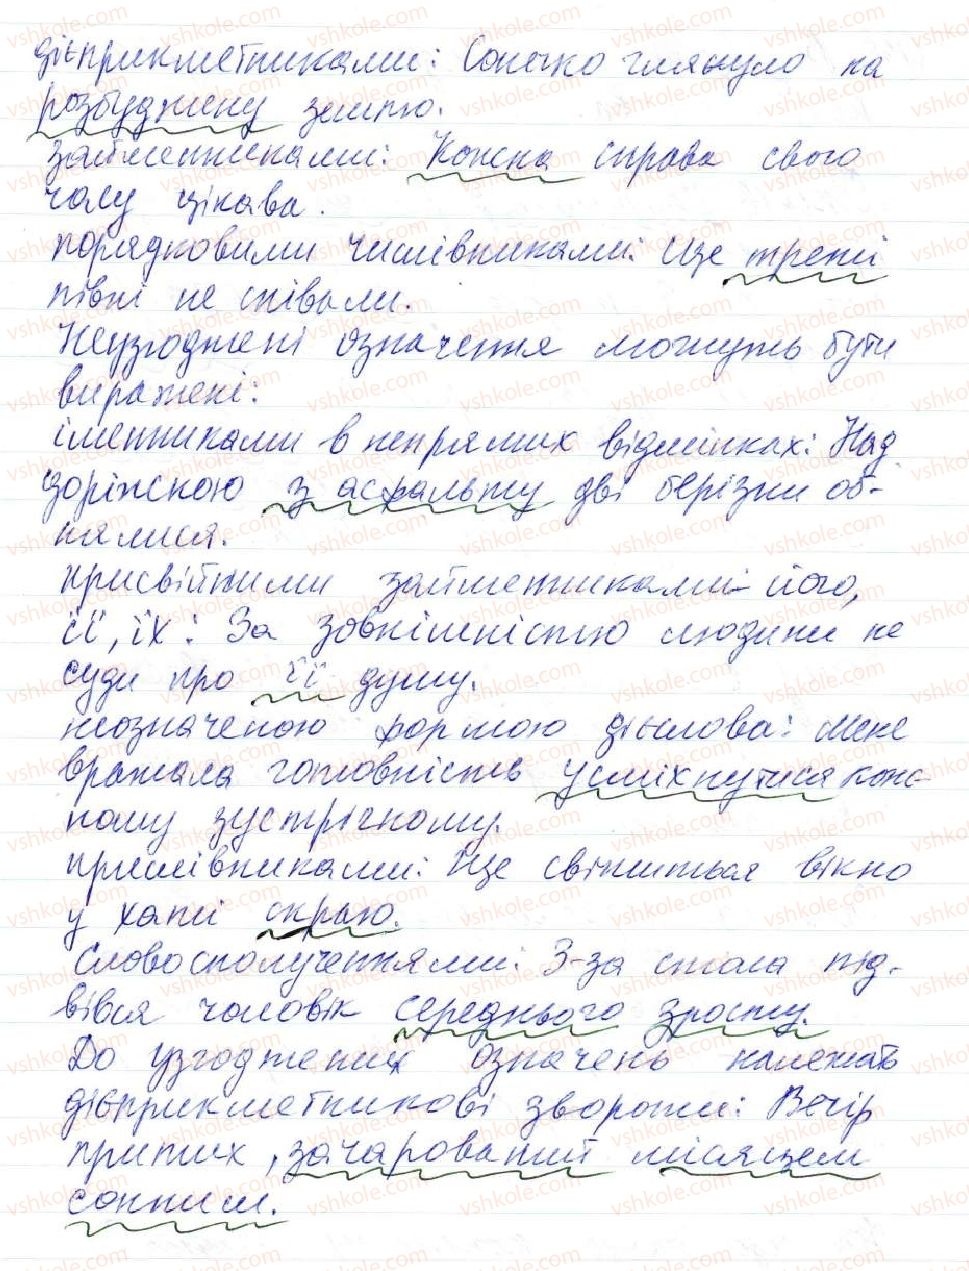 дієприкметниками: Сонечко глянуло на
розбуджену землю.
займенниками: Кожна справа свого
часу цікава.
порядковими числівниками: Ще треті
півні не співали.
Неузгоджені означення можуть бути
виражені:
іменниками в непрямих відмінках: Над
доріжкою з асфальту дві берізки об-
нялися.
присвійними займенниками його,
її, їх: За зовнішністю людини не
суди про її душу.
неозначеною формою дієслова: Мене
вражала готовність усміхнутися кож-
ному зустрічному.
прислівниками: Ще світиться вікно
у хаті скраю.
Словосполученнями: З-за стола під-
вівся чоловік середнього зросту.
До узгоджених означень належать
дієприкметникові звороти: Вечір
притих, зачарований місяцем
сонним.